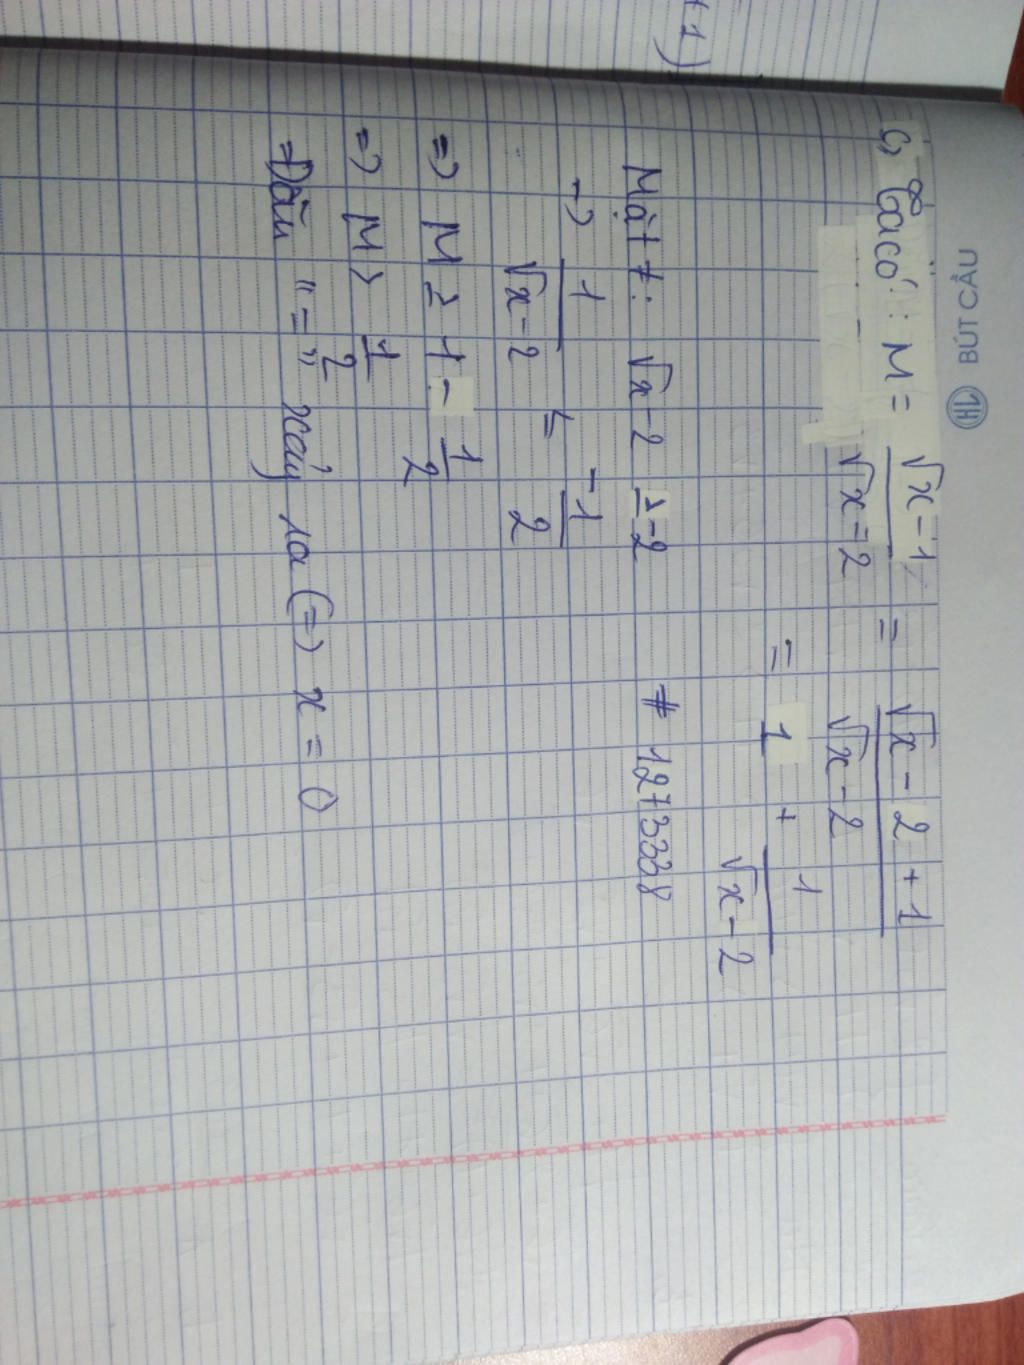 +1)
HL BÚT CẦU
c, Ta có: M = √x-1 / √x=2 = √x - 2 + 1 / √x - 2
= 1 + 1 / √x - 2
Mặt ≠: √x - 2 ≥ -2 # 1273338
=> 1 / √x - 2 ≤ -1 / 2
=> M ≥ 1 - 1/2
=> M > 1/2
=Dấu "=" xảy ra (=) x = 0